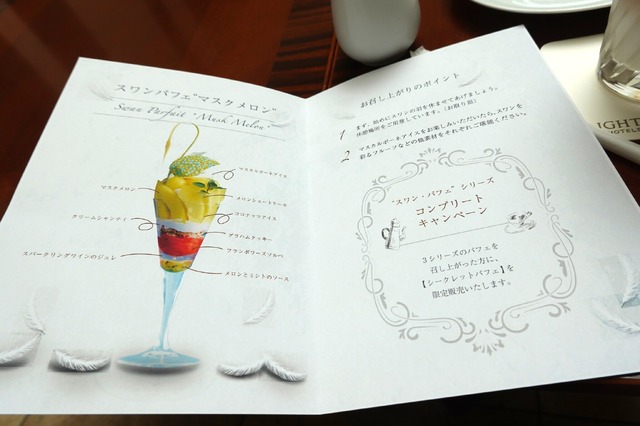 スワンパフェ"マスクメロン"
Swan Parfait "Musk Melon"
マスカルポーネアイス
マスクメロン
メロンシャーベット
ココナッツアイス
クリームシャンティ
グラハムクッキー
フランボワーズソルベ
スパークリングワインのジュレ
メロンとミントのソース
お召し上がりのポイント
1 まず、始めにスワンの羽を休ませてあげましょう。
休憩場所をご用意しています。(お取り皿)
2 マスカルポーネアイスをお楽しみいただいたら、スワンを
彩るフルーツなどの他素材をそれぞれご堪能ください。
"スワン・パフェ" シリーズ
コンプリート
キャンペーン
3シリーズのパフェを
召し上がった方に、
【シークレットパフェ】を
限定販売いたします。
IGHT